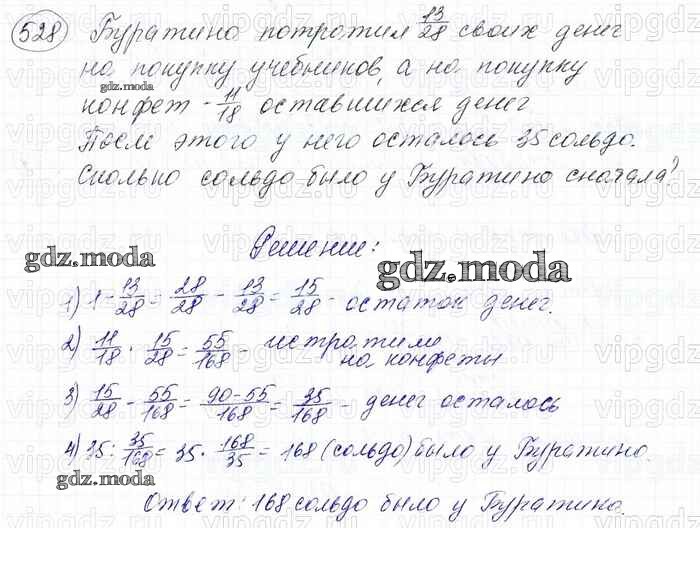 528 Буратино потратил 13/28 своих денег
на покупку учебников, а на покупку
gdz.moda
конфет - 11/18 оставшихся денег
После этого у него осталось 35 сольдо.
Сколько сольдо было у Буратино сначала?
Решение:
gdz.moda
gdz.moda
1) 1 - 13/28 = 28/28 - 13/28 = 15/28 - остаток денег.
2) 11/18 · 15/28 = 55/168 - истратили
на конфеты
3) 15/28 - 55/168 = 90-55/168 = 35/168 - денег осталось
4) 35 : 35/168 = 35 · 168/35 = 168 (сольдо) было у Буратино.
gdz.moda
Ответ: 168 сольдо было у Буратино.